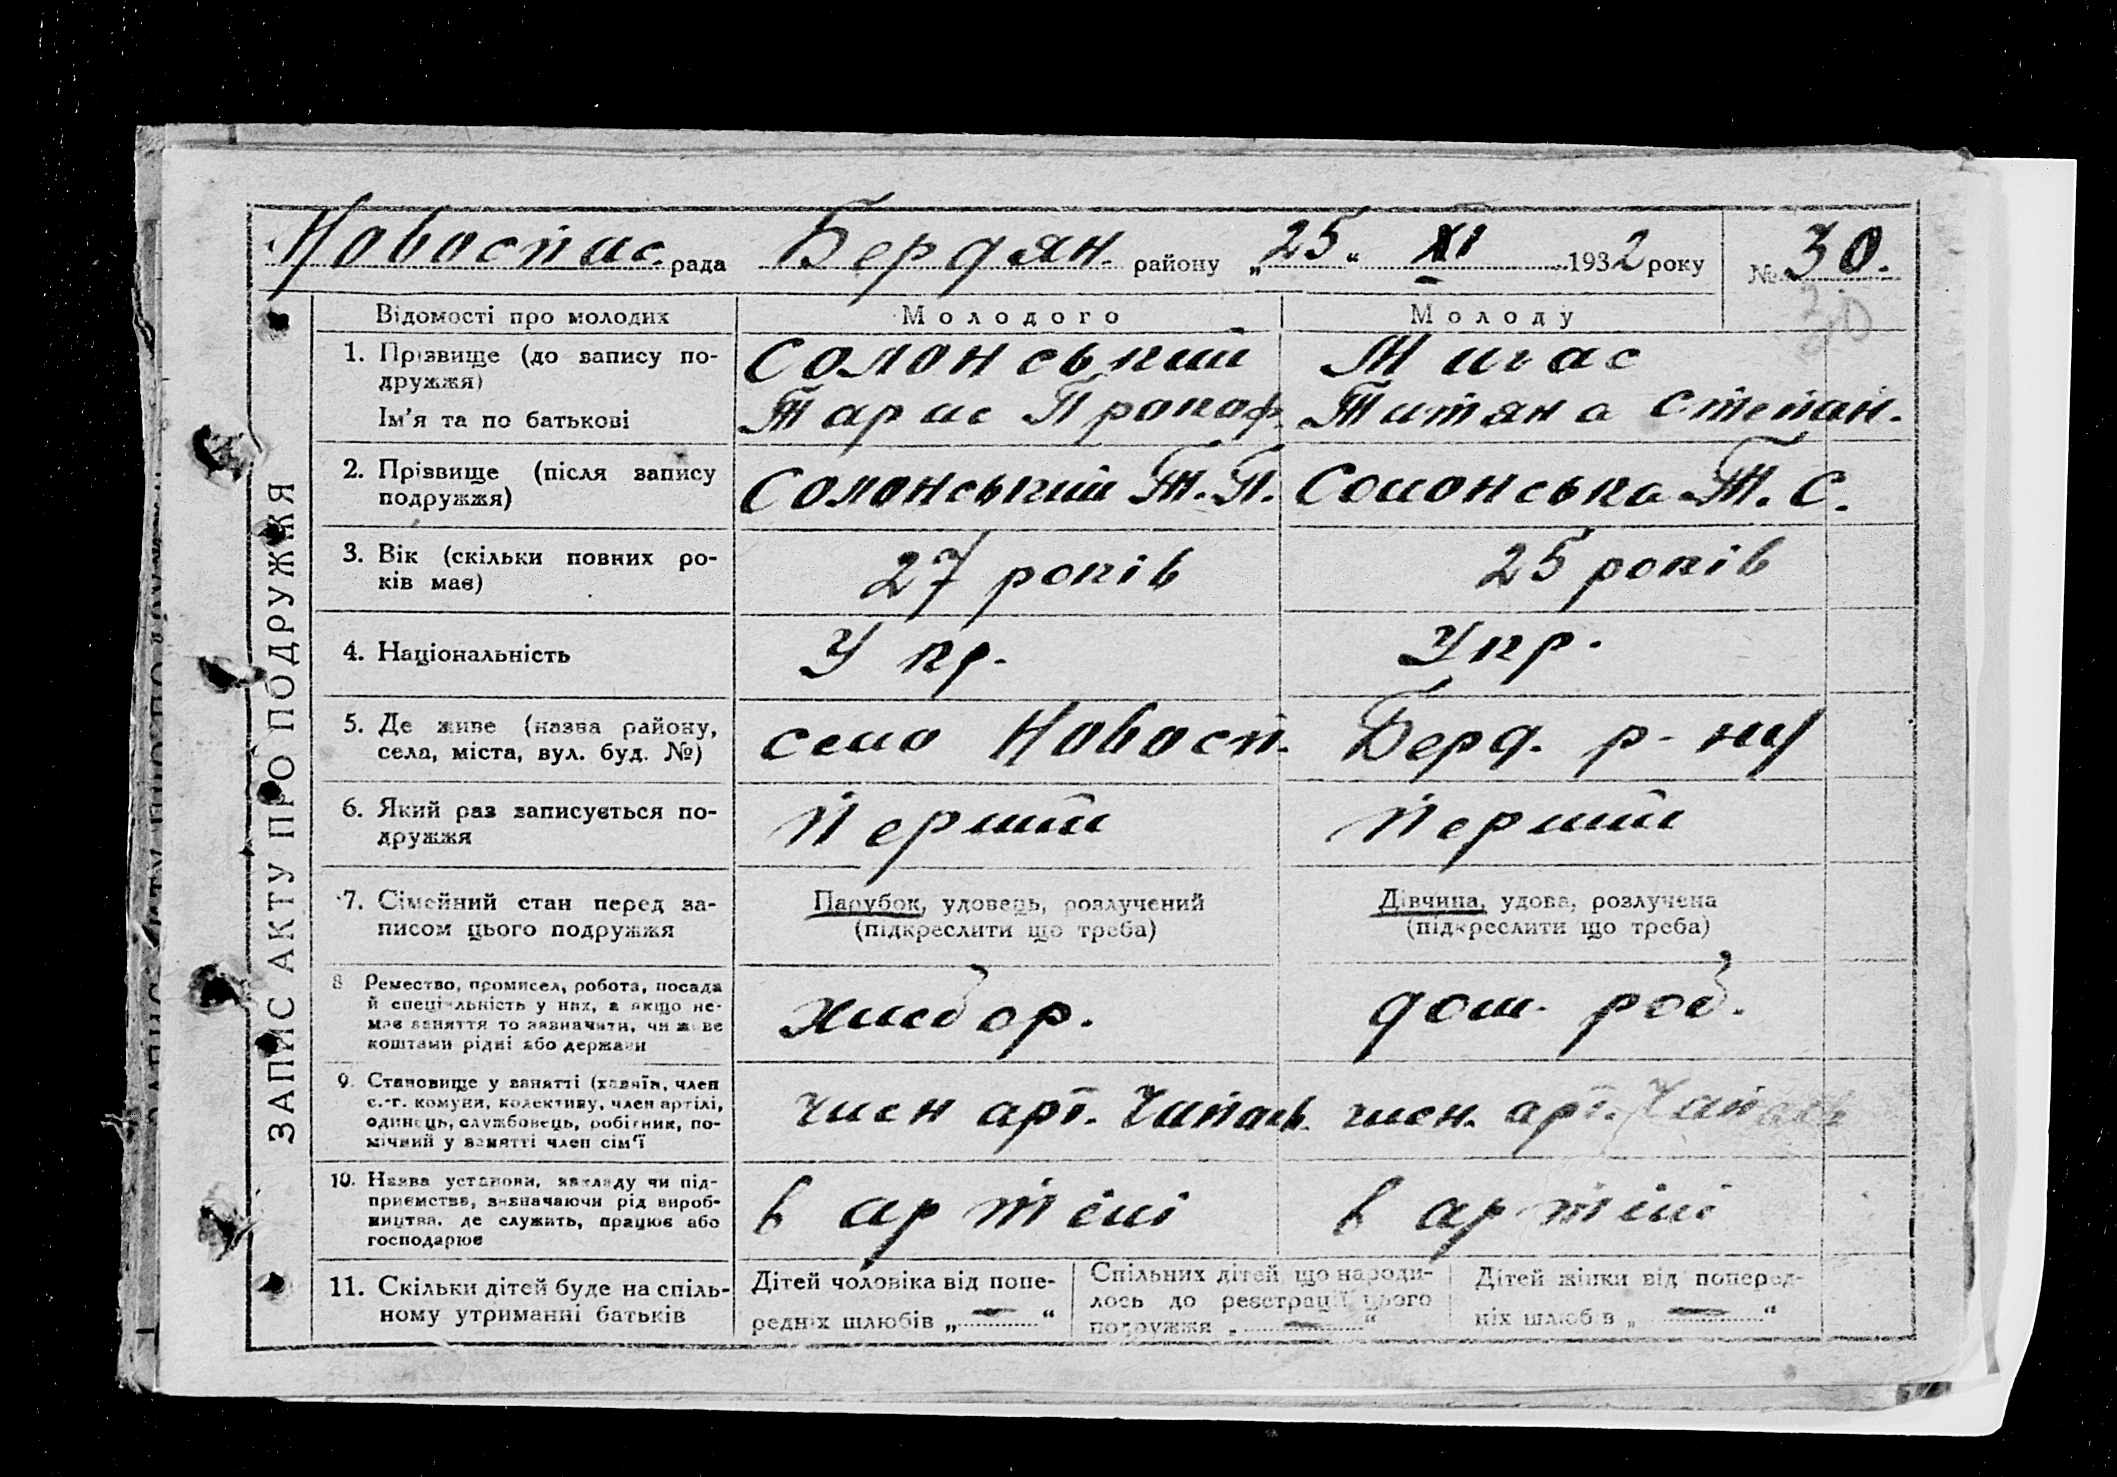 Новоспас. рада Бердян. району „25“ XI 1932 року № 30.
30
ЗАПИС АКТУ ПРО ПОДРУЖЖЯ
Відомості про молодих
Молодого
Молоду
1. Прізвище (до запису по-
дружжя)
Ім'я та по батькові
Солонський
Тарас Прокоф.
Жигас
Титяна Степан.
2. Прізвище (після запису
подружжя)
Солонський Т. П.
Солонська Т. С.
3. Вік (скільки повних ро-
ків має)
27 років
25 років
4. Національність
Укр.
Укр.
5. Де живе (назва району,
села, міста, вул. буд. №)
село Новосп.
Берд. р-ну
6. Який раз записується по-
дружжя
Перший
Перший
7. Сімейний стан перед за-
писом цього подружжя
Парубок, удовець, розлучений
(підкреслити що треба)
Дівчина, удова, розлучена
(підкреслити що треба)
8 Ремество, промисел, робота, посада
й спеціяльність у них, а якщо не-
має заняття то зазначити, чи живе
коштами рідні або держави
хлібор.
дом. роб.
9. Становище у занятті (хазяїн, член
с.-г. комуни, колективу, член артілі,
одинець, службовець, робітник, по-
мічний у занятті член сім'ї
член арт. Чапаєв.
член. арт. Чапаєв
10. Назва установи, закладу чи під-
приємства, зазначаючи рід вироб-
ництва, де служить, працює або
господарює
в артілі
в артілі
11. Скільки дітей буде на спіль-
ному утриманні батьків
Дітей чоловіка від попе-
редніх шлюбів „—“
Спільних дітей, що народи-
лось до реєстрації цього
подружжя „—“
Дітей жінки від поперед-
ніх шлюбів „—“